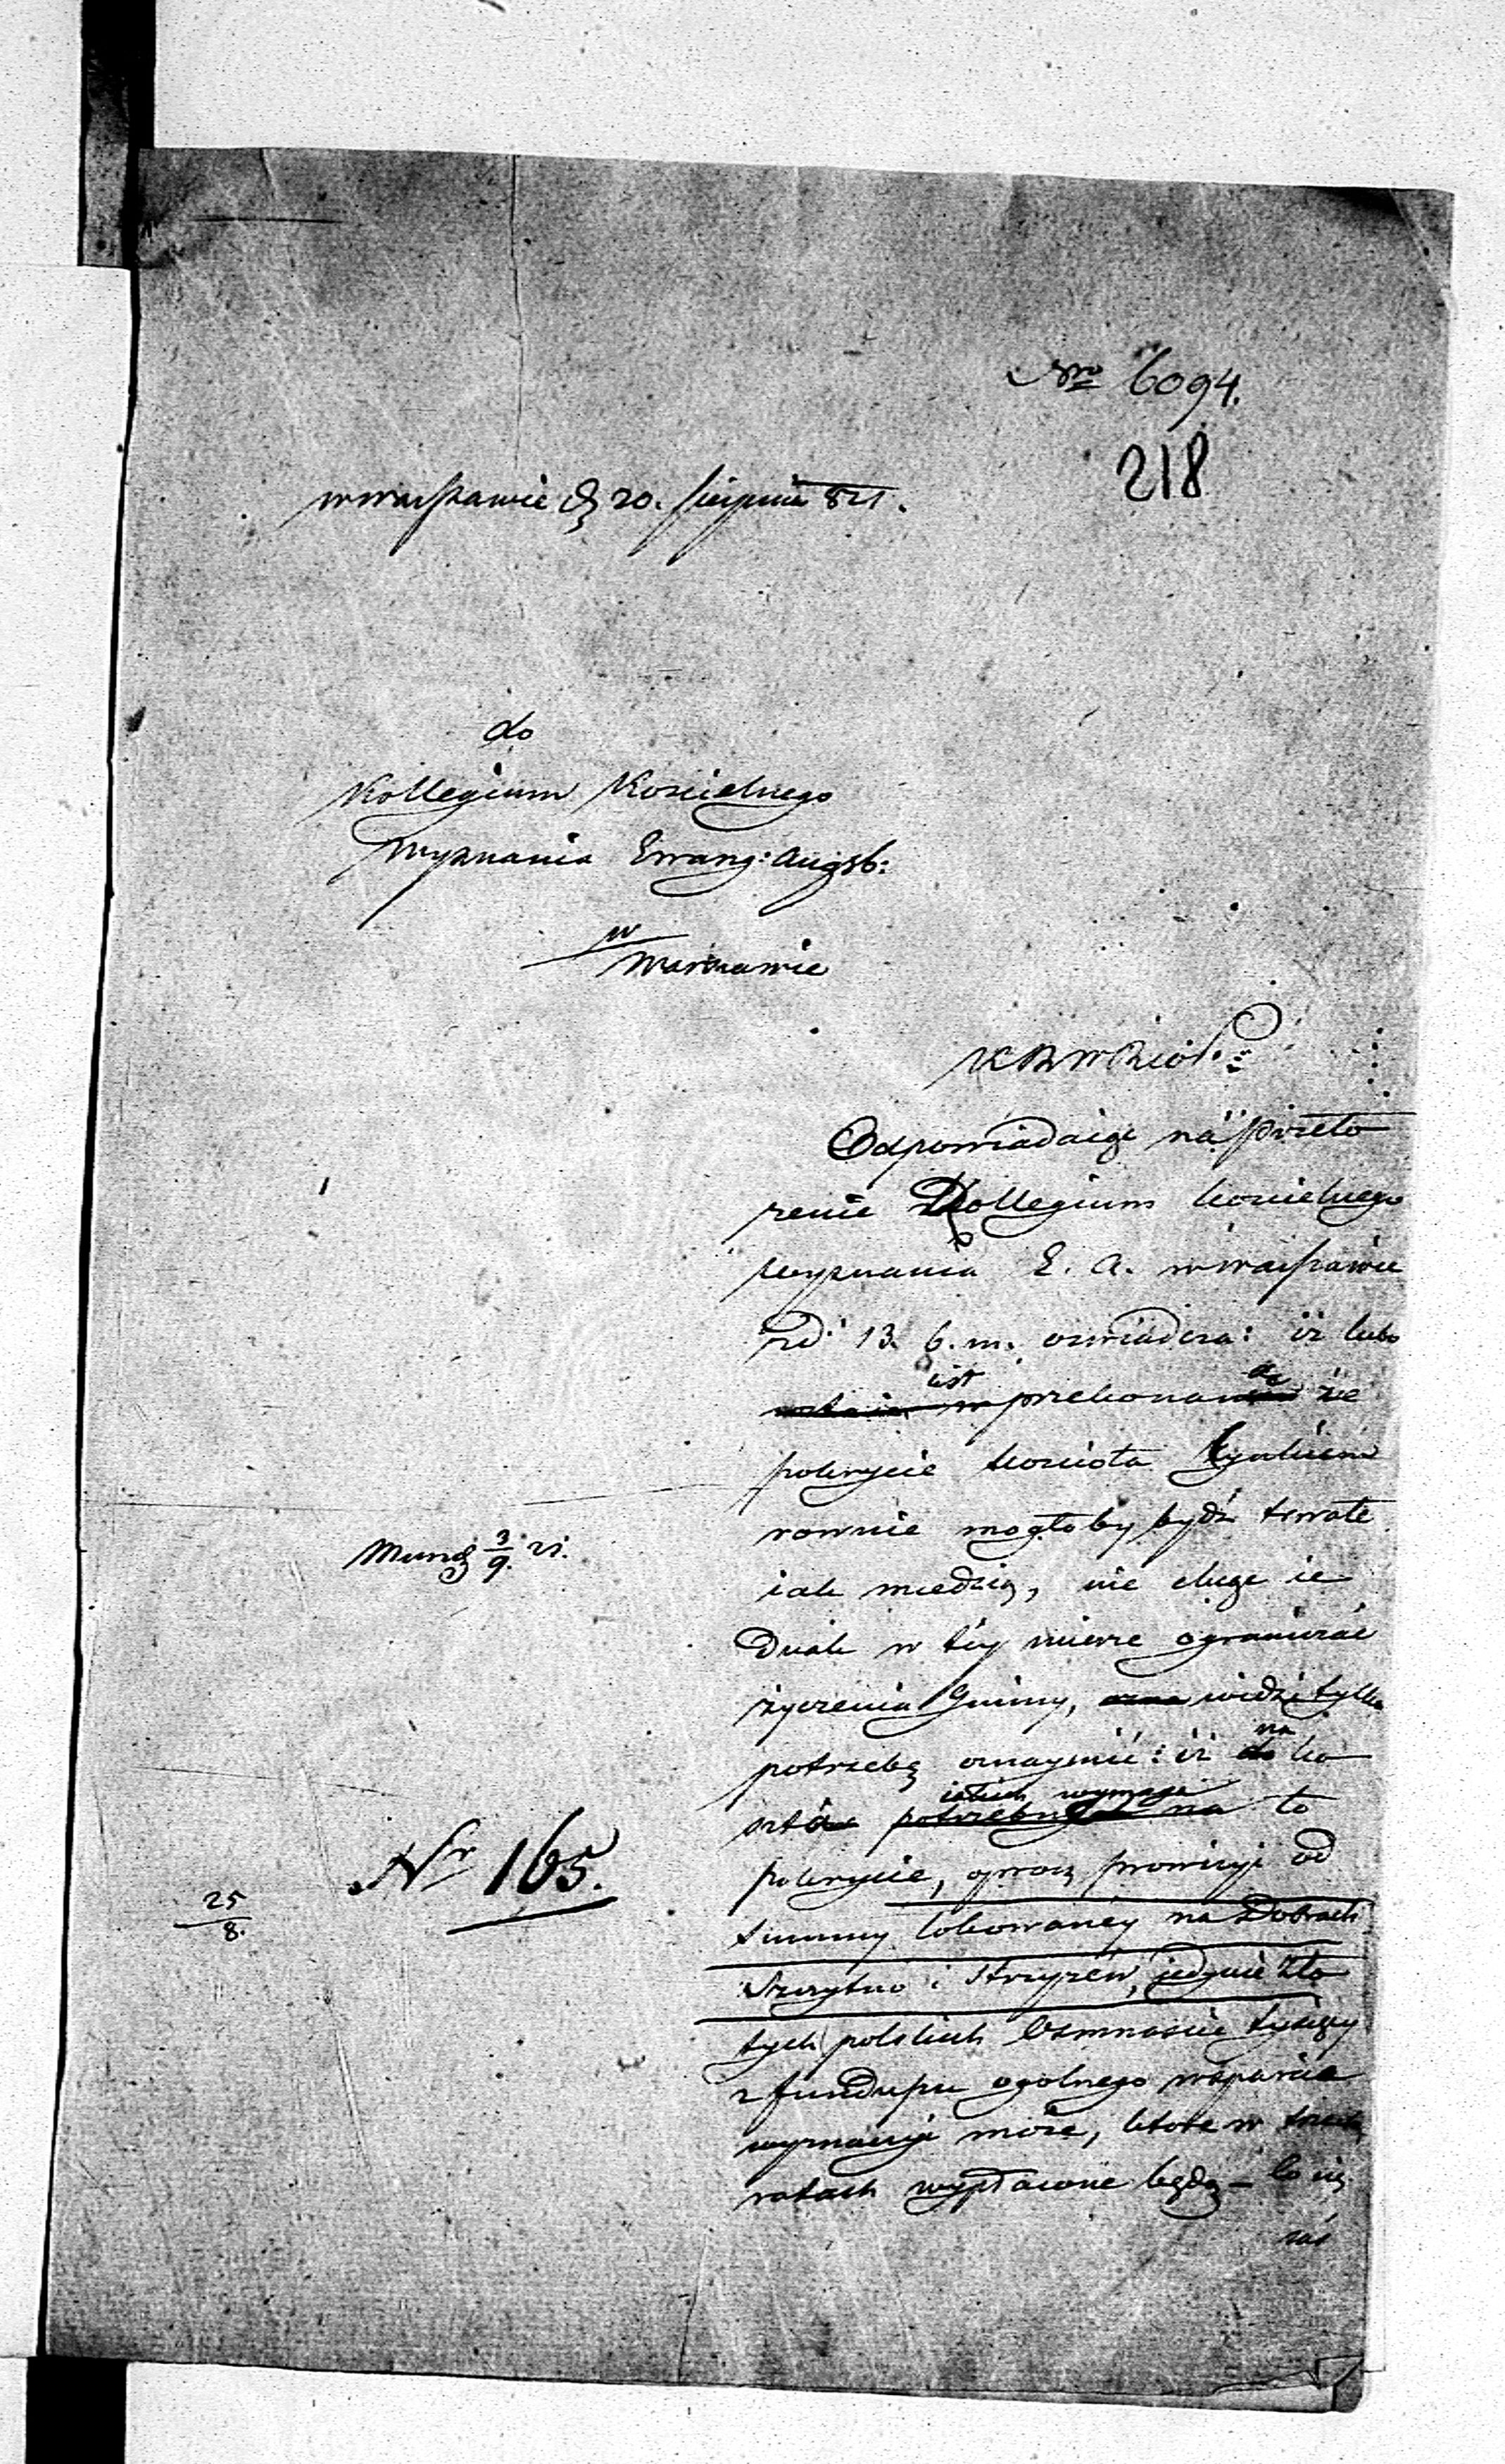 Nro 6094.
218
w Warszawie d. 20. sierpnia 821.
do
Kollegium Koscielnego
Wyznania Ewang: Augsb:
w
Warszawie
K R W R i O P.
Odpowiadaiąc na przeło
żenie Kollegium koscielnego
wyznania E. A. w Warszawie
z d. 13. b. m. oswiadcza: iż lubo
iest przekonaną że
pokrycie koscioła
rownie mogłoby bydź trwałe
iak miedzią, nie chcąc ie
dnak w tey mierze ograniczać
życzenia Gminy, widzi tylko
potrzebę oznaymić: iż na ko
szta iakich wymaga to
pokrycie, oprocz prowizyi od
summy lokowaney na Dobrach
Szczytno i Strzyżew, jedynie Zło
tych polskich Osmnascie tysięcy
z funduszu ogolnego wsparcia
wyznaczyć może, ktore w trzech
ratach wypłacone będą – Co się
zaś
Mund 3/9. 21.
Nr 165.
25/8.